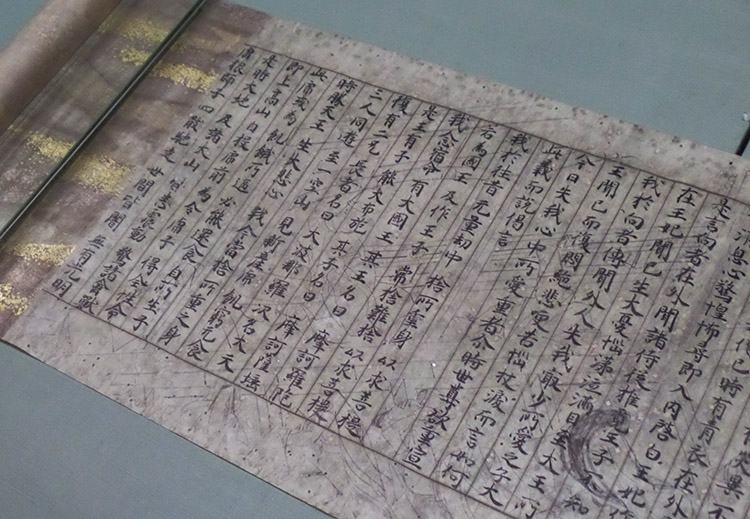 時有青衣在外
息心驚惶怖尋即入內啓白王妃作
是言向者在外聞諸侍從推覓王子不知
在王妃聞已生大憂惱涕泣滿目至大王所
我於向者傳聞外人失我最少所愛之子大
王聞已而復悶絕悲哽苦惱抆淚而言如何
今日失我心中所愛重者尒時世尊欲重宣
此義而說偈言
我於往昔 无量劫中 捨所重身 以求菩提
若為國王 及作王子 常捨難捨 以求菩提
我念宿命 有大國王 其王名曰 摩訶羅陀
是王有子 能大布施 其子名曰 摩訶薩埵
復有二兄 長者名曰 大波那羅 次名大天
三人同遊 至一空山 見新產虎 飢窮无食
時勝大王 生大悲心 我今當捨 所重之身
此虎或為 飢餓所逼 必能還食 自所生子
即上高山 自投虎前 為令虎子 得全性命
是時大地 及諸大山 皆悉震動 驚諸禽獸
虎狼師子 四散馳走 世間皆闇 无有光明